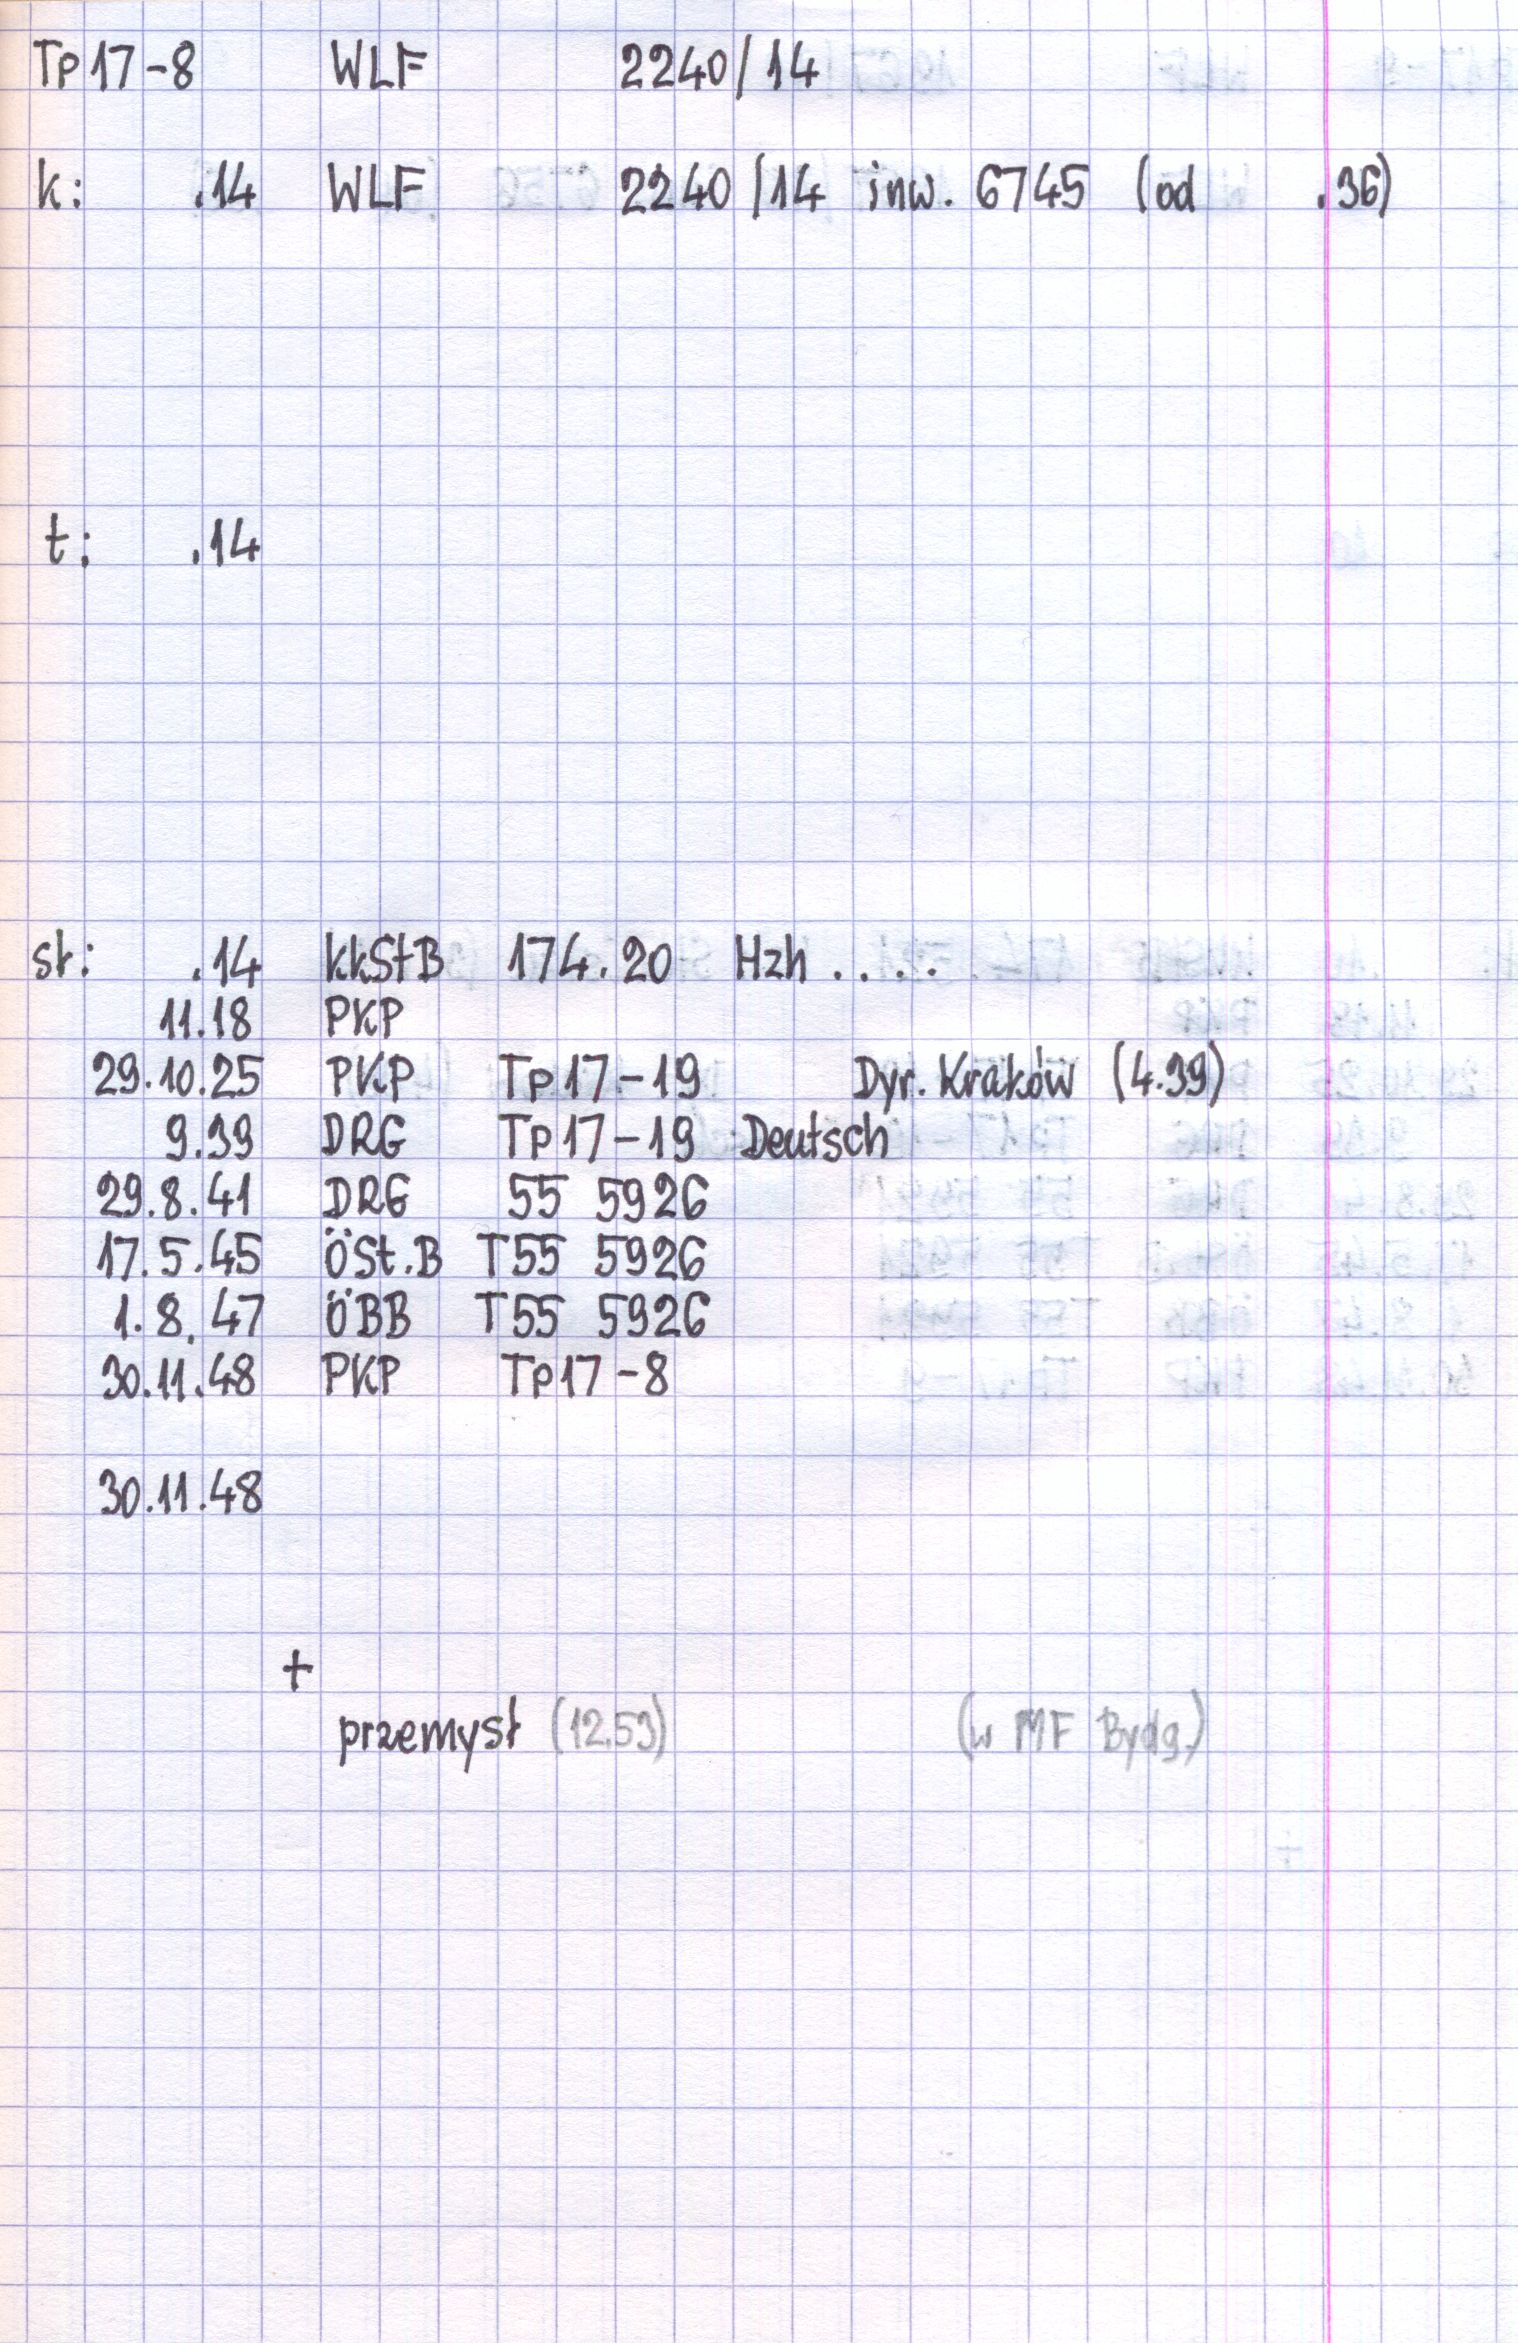 Tp17-8 WLF 2240/14
k: .14 WLF 2240/14 inw. 6745 (od .36)
t: .14
st: .14 kkStB 174.20 Hzh . . . .
11.18 PKP
29.10.25 PKP Tp17-19 Dyr. Kraków (4.39)
9.39 DRG Tp17-19 Deutsch
29.8.41 DRG 55 5926
17.5.45 ÖSt.B T55 5926
1.8.47 ÖBB T55 5926
30.11.48 PKP Tp17-8
30.11.48
+
przemysł (12.53) (w MF Bydg.)